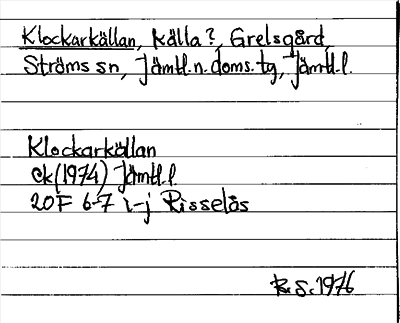 Klockarkällan, källa?, Grelsgård,
Ströms sn, Jämtl.n.doms.tg, Jämtl.l.
Klockarkällan
Ek(1974) Jämtl.l.
20F 6-7 i-j Risselås
R.S.1976